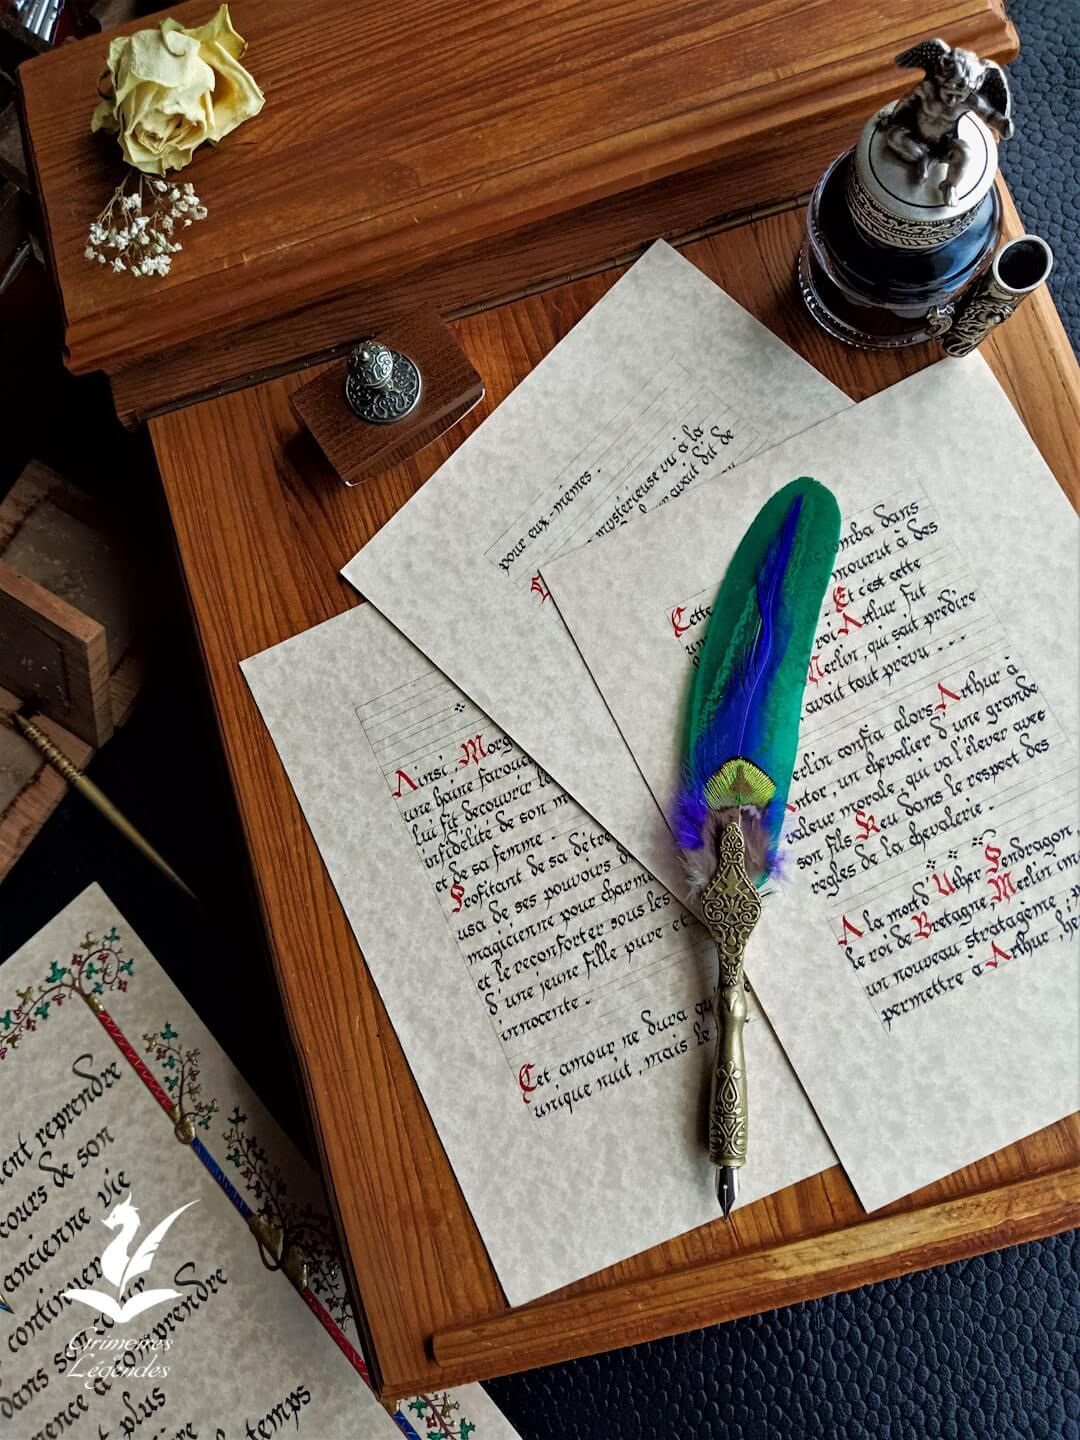 pour eux-mêmes.
mystérieuse vu à la
avait dit de
Cette
omba dans
mourut à des
Et c'est cette
roi Arthur fut
Merlin, qui sait prédire
avait tout prévu ...
erlin confia alors Arthur à
ntor, un chevalier d'une grande
valeur morale, qui va l'élever avec
son fils Keu dans le respect des
règles de la chevalerie.
A la mort d'Uther Pendragon,
le roi de Bretagne, Merlin
un nouveau stratagème
permettre à Arthur,
Ainsi, Morg
une haine farouc
lui fit découvrir l
infidélité de son m
et de sa femme.
Profitant de sa détre
usa de ses pouvoirs d
magicienne pour charme
et le réconforter sous les
d'une jeune fille pure et
innocente.
Cet amour ne dura qu'
unique nuit, mais le
ent reprendre
cours de son
ancienne vie
continuer
dans son cœur
mence à comprendre
plus
temps
Grimoires
et
Légendes